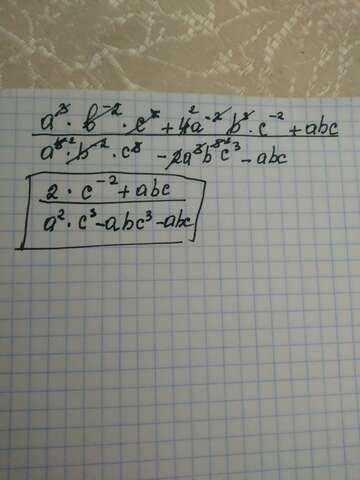 a³ · b⁻² · c⁸ + 4² a⁻² b³ · c⁻² + abc
a⁵ ² · b⁻² · c⁸ - 2a³ b⁵ ⁶ c³ - abc
2 · c⁻² + abc
a² · c³ - abc³ - abc